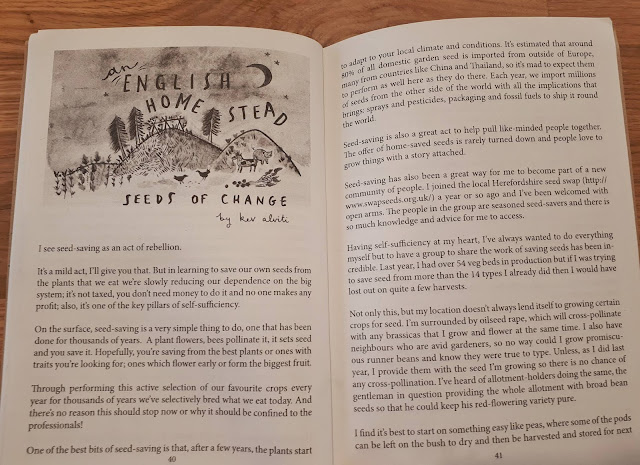 an
ENGLISH
HOME STEAD
SEEDS OF CHANGE
by kev alviti
I see seed-saving as an act of rebellion.
It's a mild act, I'll give you that. But in learning to save our own seeds from
the plants that we eat we're slowly reducing our dependence on the big
system; it's not taxed, you don't need money to do it and no one makes any
profit; also, it's one of the key pillars of self-sufficiency.
On the surface, seed-saving is a very simple thing to do, one that has been
done for thousands of years. A plant flowers, bees pollinate it, it sets seed
and you save it. Hopefully, you're saving from the best plants or ones with
traits you're looking for; ones which flower early or form the biggest fruit.
Through performing this active selection of our favourite crops every
year for thousands of years we've selectively bred what we eat today. And
there's no reason this should stop now or why it should be confined to the
professionals!
One of the best bits of seed-saving is that, after a few years, the plants start
40
to adapt to your local climate and conditions. It's estimated that around
80% of all domestic garden seed is imported from outside of Europe,
many from countries like China and Thailand, so it's mad to expect them
to perform as well here as they do there. Each year, we import millions
of seeds from the other side of the world with all the implications that
brings: sprays and pesticides, packaging and fossil fuels to ship it round
the world.
Seed-saving is also a great act to help pull like-minded people together.
The offer of home-saved seeds is rarely turned down and people love to
grow things with a story attached.
Seed-saving has also been a great way for me to become part of a new
community of people. I joined the local Herefordshire seed swap (http://
www.swapseeds.org.uk/) a year or so ago and I've been welcomed with
open arms. The people in the group are seasoned seed-savers and there is
so much knowledge and advice for me to access.
Having self-sufficiency at my heart, I've always wanted to do everything
myself but to have a group to share the work of saving seeds has been in-
credible. Last year, I had over 54 veg beds in production but if I was trying
to save seed from more than the 14 types I already did then I would have
lost out on quite a few harvests.
Not only this, but my location doesn't always lend itself to growing certain
crops for seed. I'm surrounded by oilseed rape, which will cross-pollinate
with any brassicas that I grow and flower at the same time. I also have
neighbours who are avid gardeners, so no way could I grow promiscu-
ous runner beans and know they were true to type. Unless, as I did last
year, I provide them with the seed I'm growing so there is no chance of
any cross-pollination. I've heard of allotment-holders doing the same, the
gentleman in question providing the whole allotment with broad bean
seeds so that he could keep his red-flowering variety pure.
I find it's best to start on something easy like peas, where some of the pods
can be left on the bush to dry and then be harvested and stored for next
41